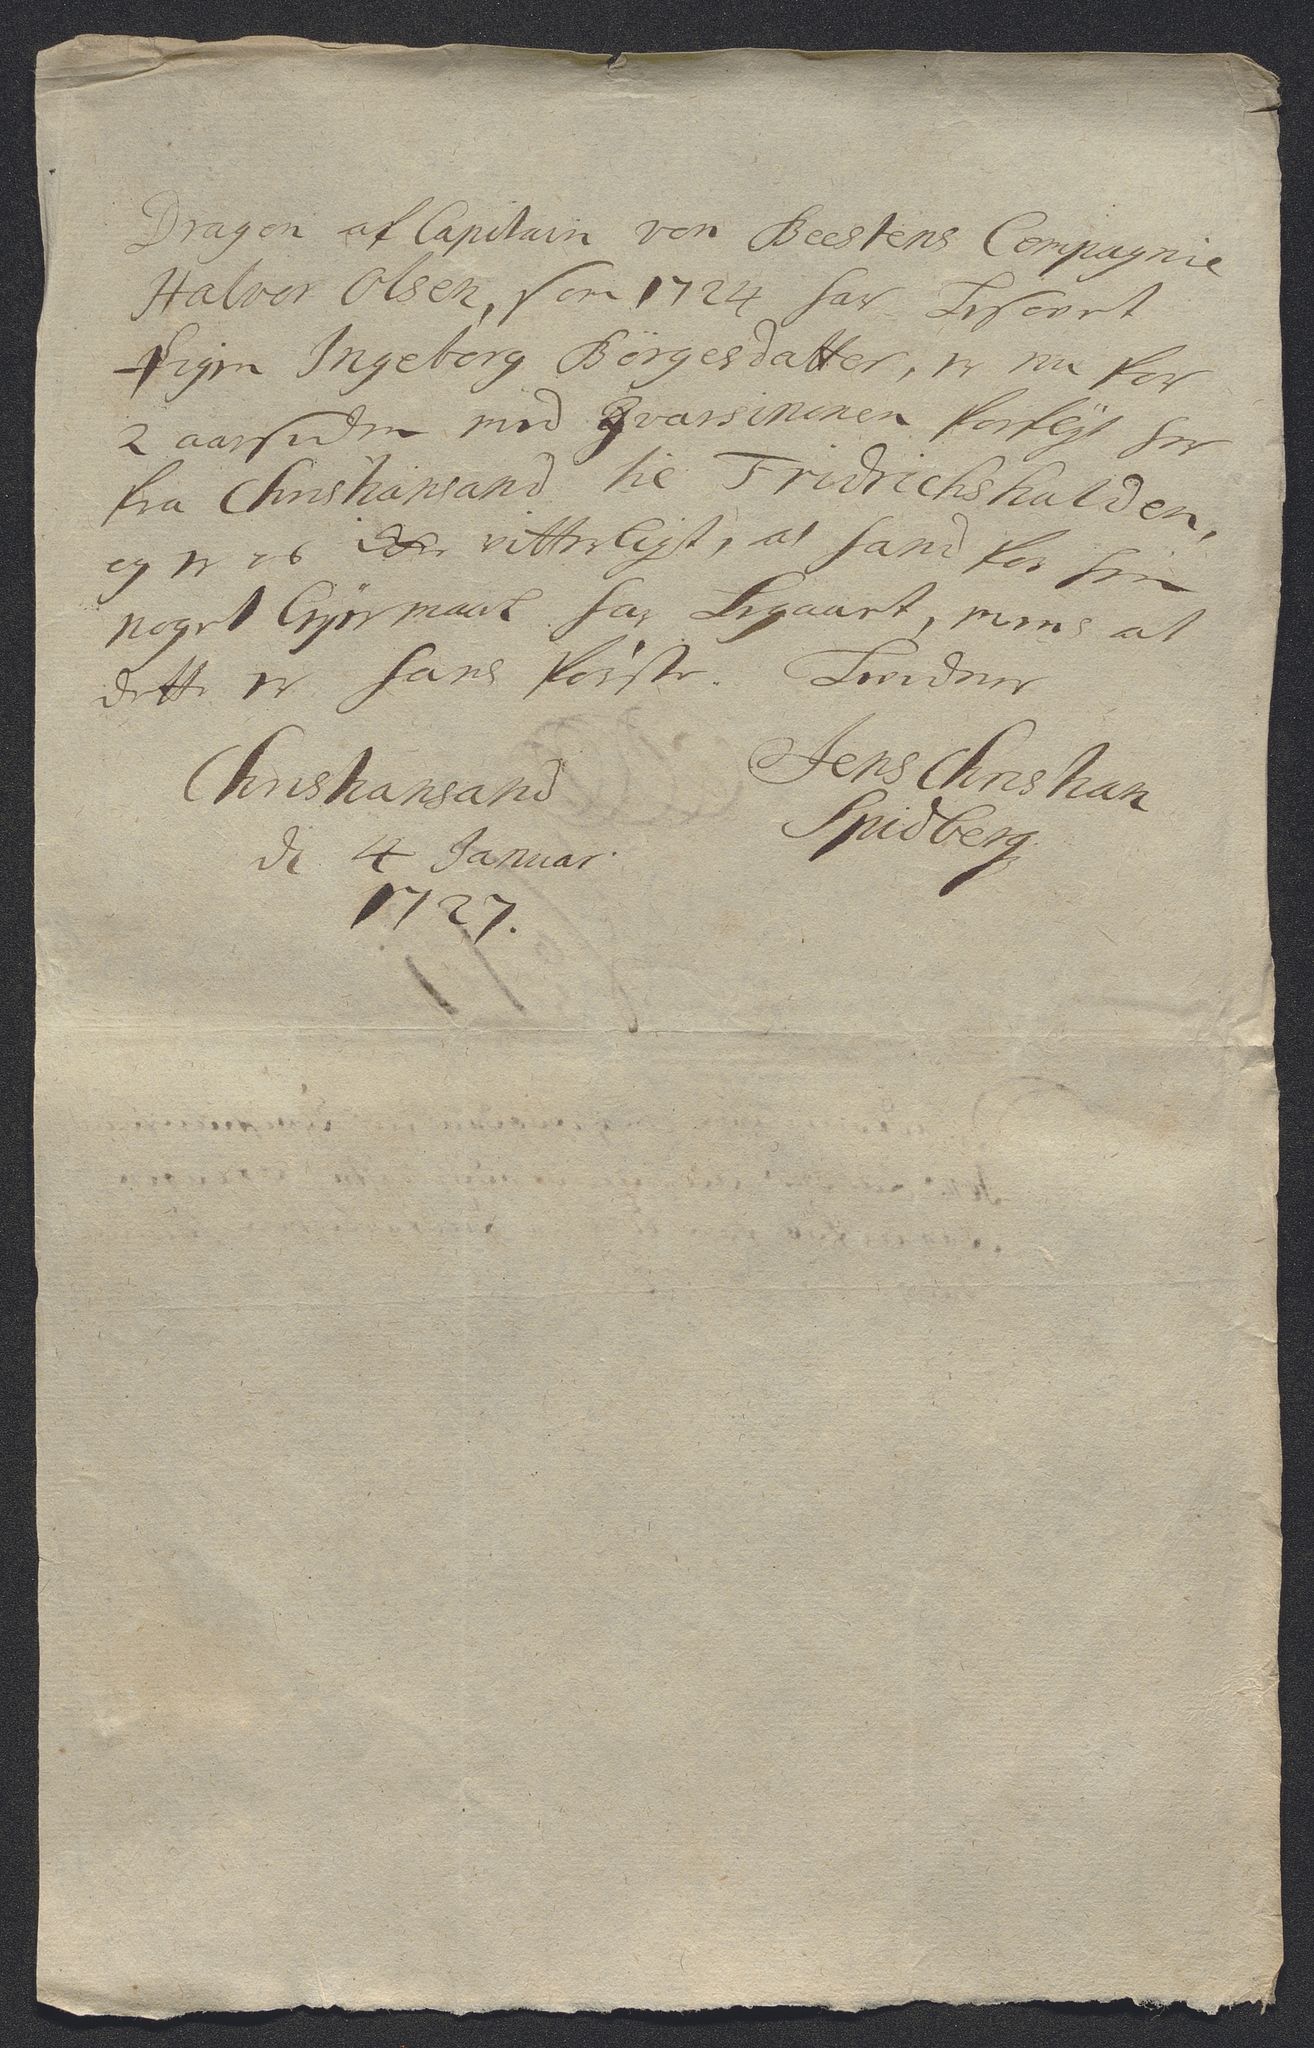 Dragon af Capitain von Beestens Compagnie
Halvor Olsen, som 1724 har besovet
Pigen Ingeborg Börgesdatter, er nu for
2 aar siden med Gvarsinonen forlagt her
fra Christiansand til Fridrichshalden,
og er os icke vitterligt, at hand for hen
noget leyermaal har begaaet, mens at
dette er hans første. Testerer
Christiansand
Jens Christian
Spidberg
de 4 Januar.
1727.